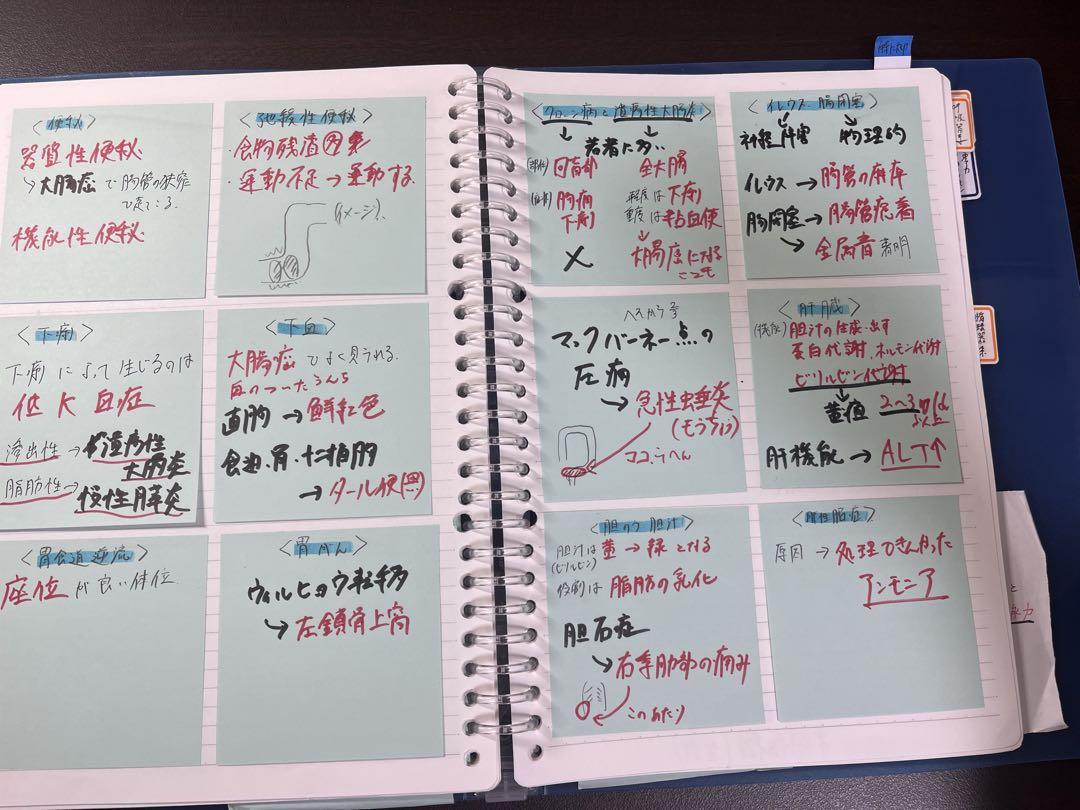 <便秘>
器質性便秘
↳大腸癌で腸管の狭窄
機能性便秘
<弛緩性便秘>
・食物残渣
・運動不足→運動する
(イメージ)
<下痢>
下痢によって生じるのは
低K血症
滲出性→潰瘍性
大腸炎
脂肪性→慢性膵炎
<下血>
大腸癌でよく見られる。
血のついたうんち
直腸→鮮紅色
食道・胃・十二指腸
→タール便(黒)
<胃食道逆流>
座位が良い体位
<胃がん>
ウィルヒョウ転移
↳左鎖骨上窩
<クローン病と潰瘍性大腸炎>
若者に多い
(部位)回盲部 全大腸
(症状)腹痛 軽度は下痢
下痢 重度は粘血便
大腸癌になる
ことも
<イレウス・腸閉塞>
神経障害 物理的
イレウス→腸管の麻痺
腸閉塞→腸管癒着
↘金属音
マックバーネー点の
圧痛
→急性虫垂炎
(もうちょう)
ココらへん
<肝臓>
(機能)胆汁の生成・出す
蛋白代謝、ホルモン代謝
ビリルビン代謝
黄疸 2~3mg/dl
以上
肝機能→ALT↑
<胆のう 胆汁>
胆汁は黄→緑となる
(ビリルビン)
役割は脂肪の乳化
胆石症
↘右季肋部の痛み
このあたり
<肝性脳症>
原因→処理できなかった
アンモニア